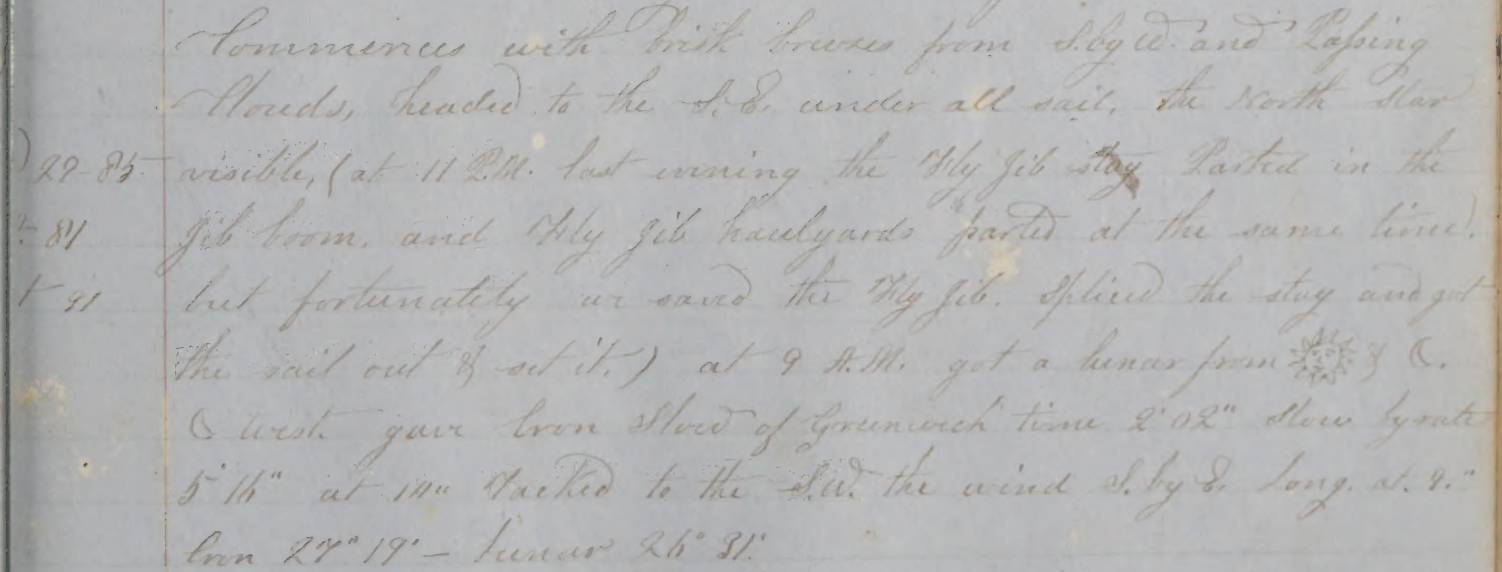 Commences with brisk breezes from S.by W. and Passing
Clouds, headed to the S.E. under all sail, the North Star
29-85 visible, (at 11 P.M. last evening the Fly Jib stay Parted in the
81 Jib boom, and Fly Jib haulyards parted at the same time).
91 but fortunately we saved the Fly Jib. Spliced the stay and got
the sail out & set it.) at 9 A.M. got a lunar from ☀ & ☾.
☾ West. gave Cron Slow of Greenwich time 2' 02" Slow by rate
5' 16" at Tacked to the S.W. the wind S. by E. Long. at. 9."
Cron 27° 19' — Lunar 26° 31'.